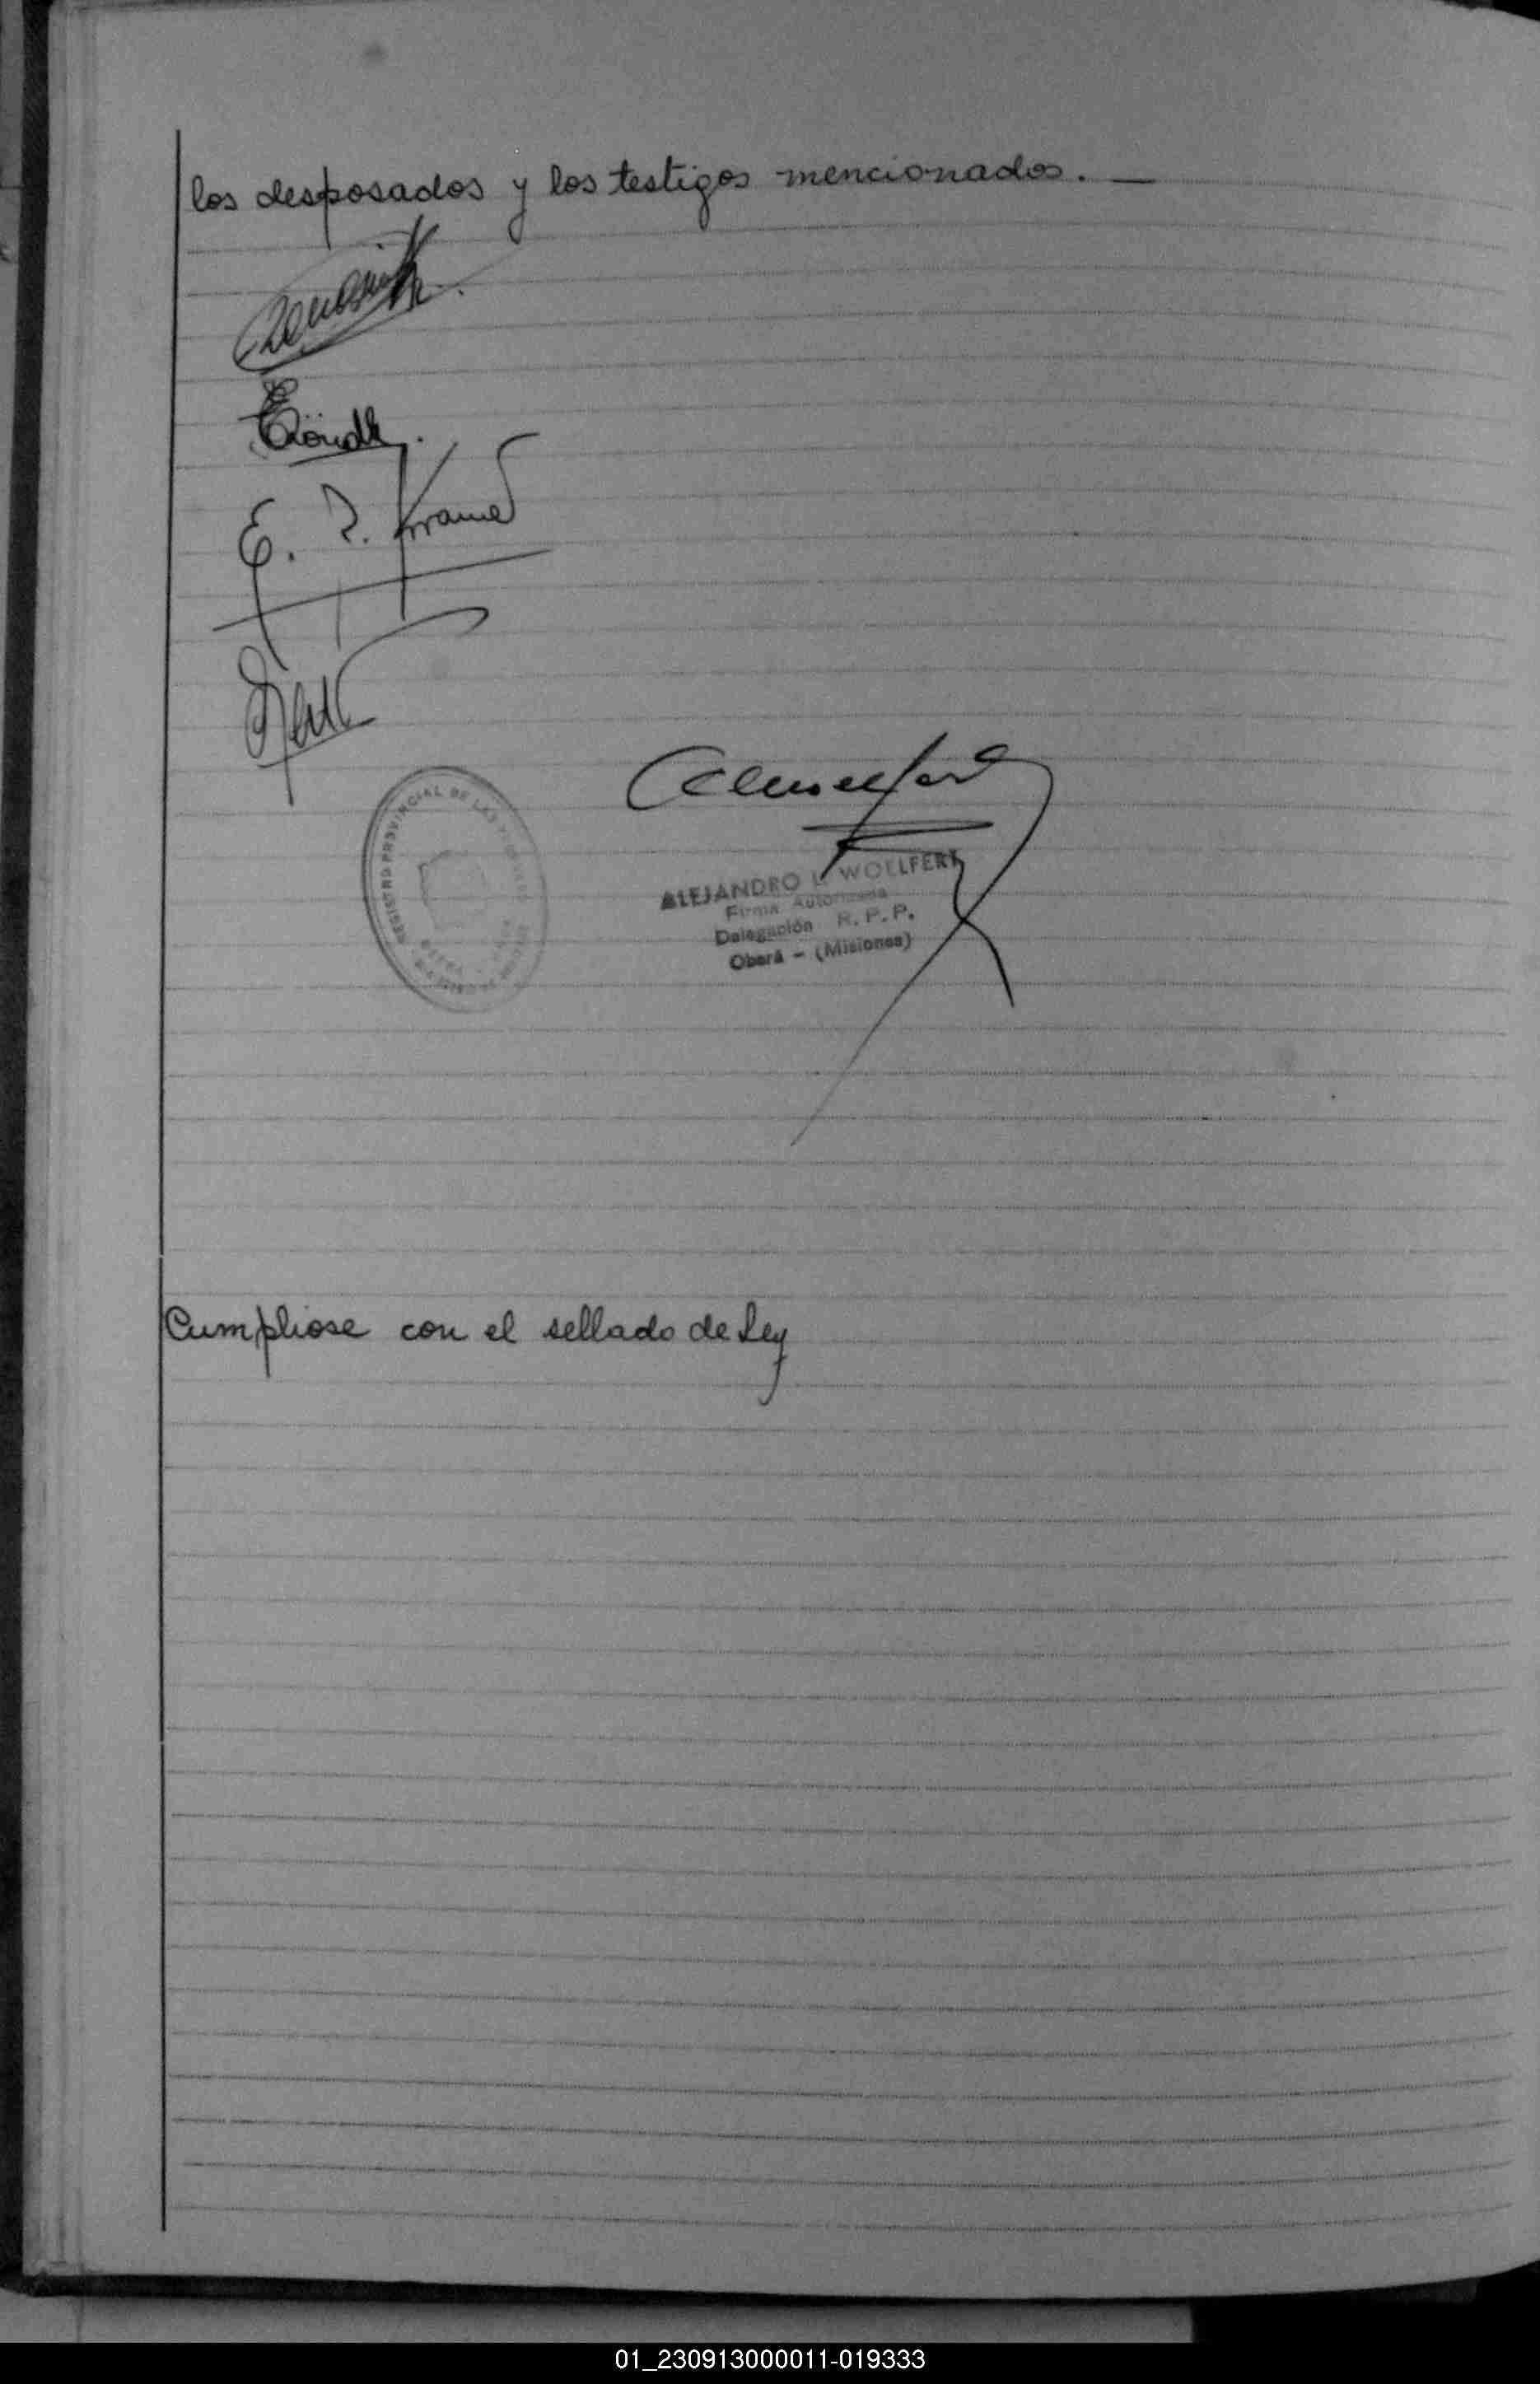 los desposados y los testigos mencionados. —
E. Kramer
REGISTRO PROVINCIAL DE LAS PERSONAS
ALEJANDRO L. WOELFERT
Firma Autorizada
Delegación R.P.P.
Oberá - (Misiones)
Cumpliose con el sellado de Ley
01_230913000011-019333